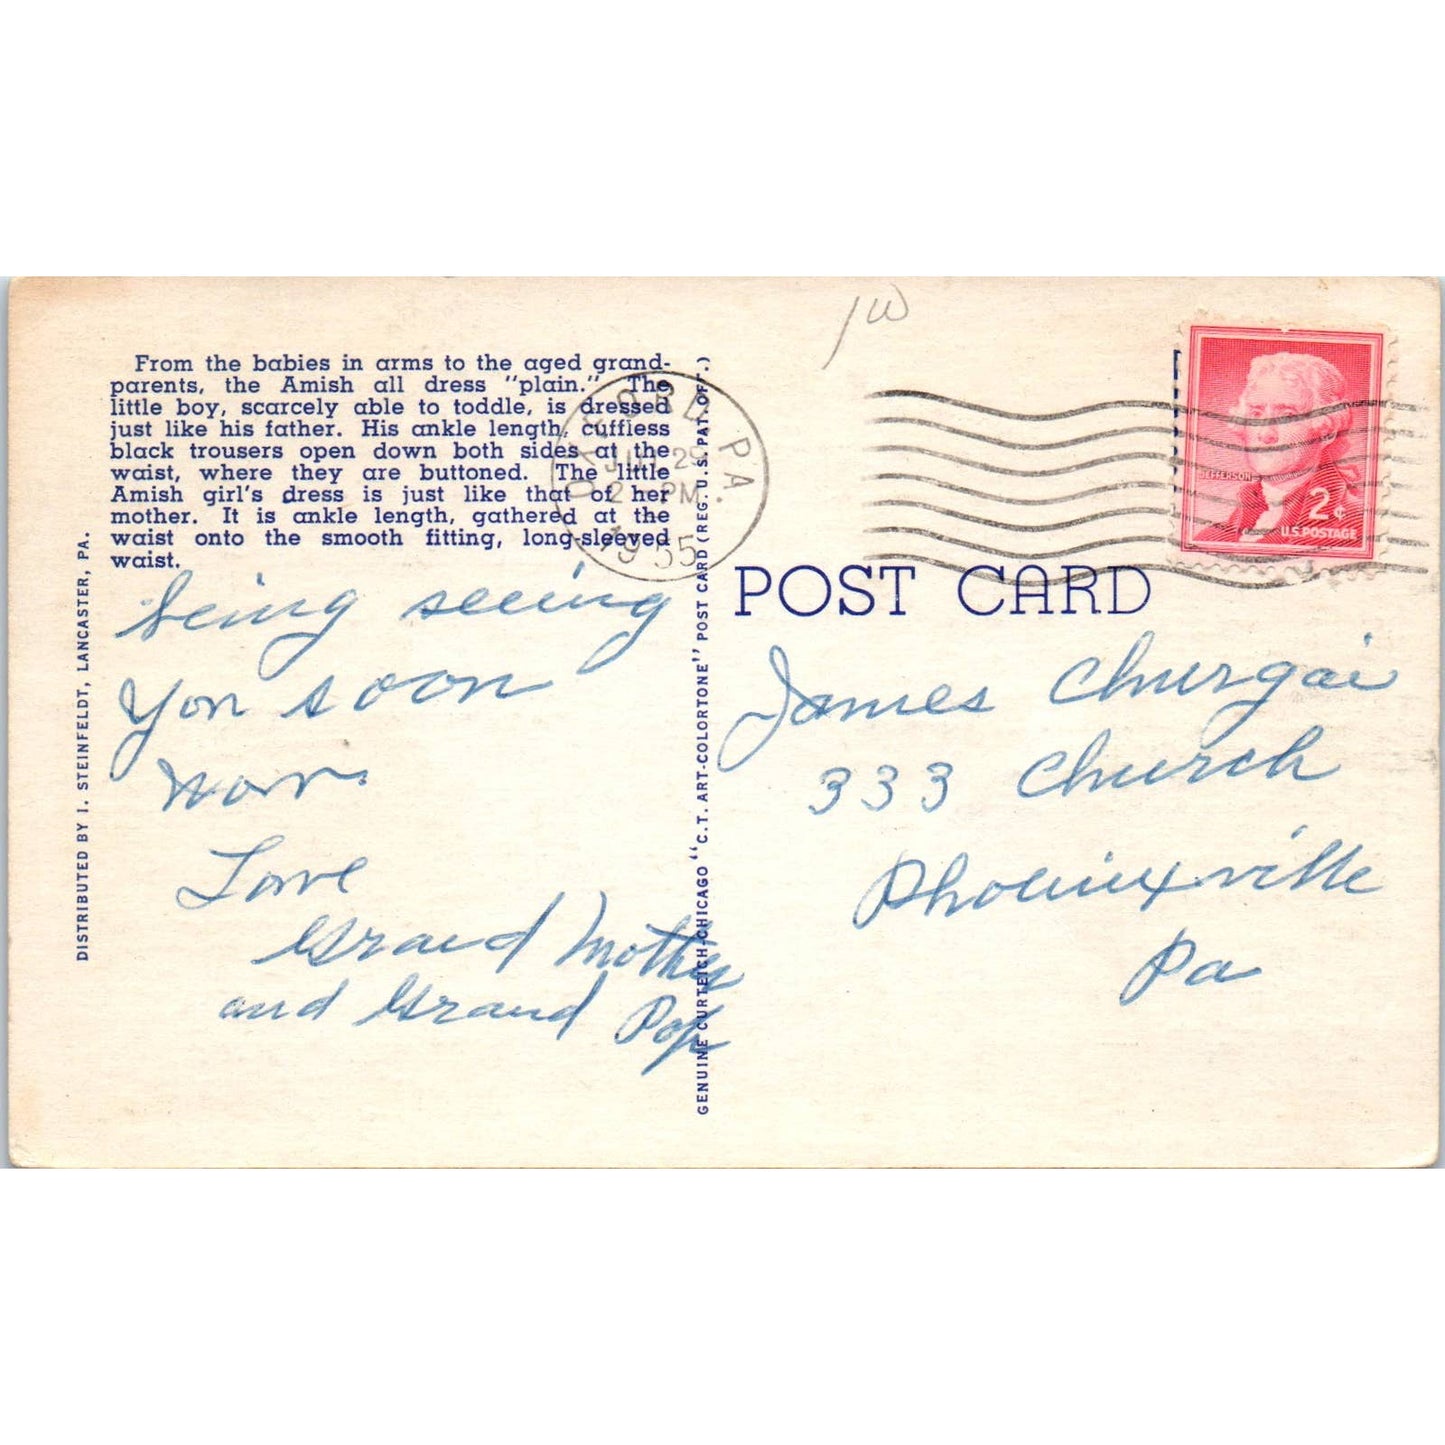 From the babies in arms to the aged grand-
parents, the Amish all dress "plain." The
little boy, scarcely able to toddle, is dressed
just like his father. His ankle length, cuffless
black trousers open down both sides at the
waist, where they are buttoned. The little
Amish girl's dress is just like that of her
mother. It is ankle length, gathered at the
waist onto the smooth fitting, long-sleeved
waist.
being seeing
you soon
now.
Love
Grand Mother
and Grand Pop
DISTRIBUTED BY I. STEINFELDT, LANCASTER, PA.
GENUINE CURTEICH-CHICAGO "C.T. ART-COLORTONE" POST CARD (REG. U.S. PAT. OFF.)
OXFORD PA.
29
2 PM
1955
JEFFERSON
2¢
U.S. POSTAGE
POST CARD
James Churgai
333 Church
Phoenixville
Pa